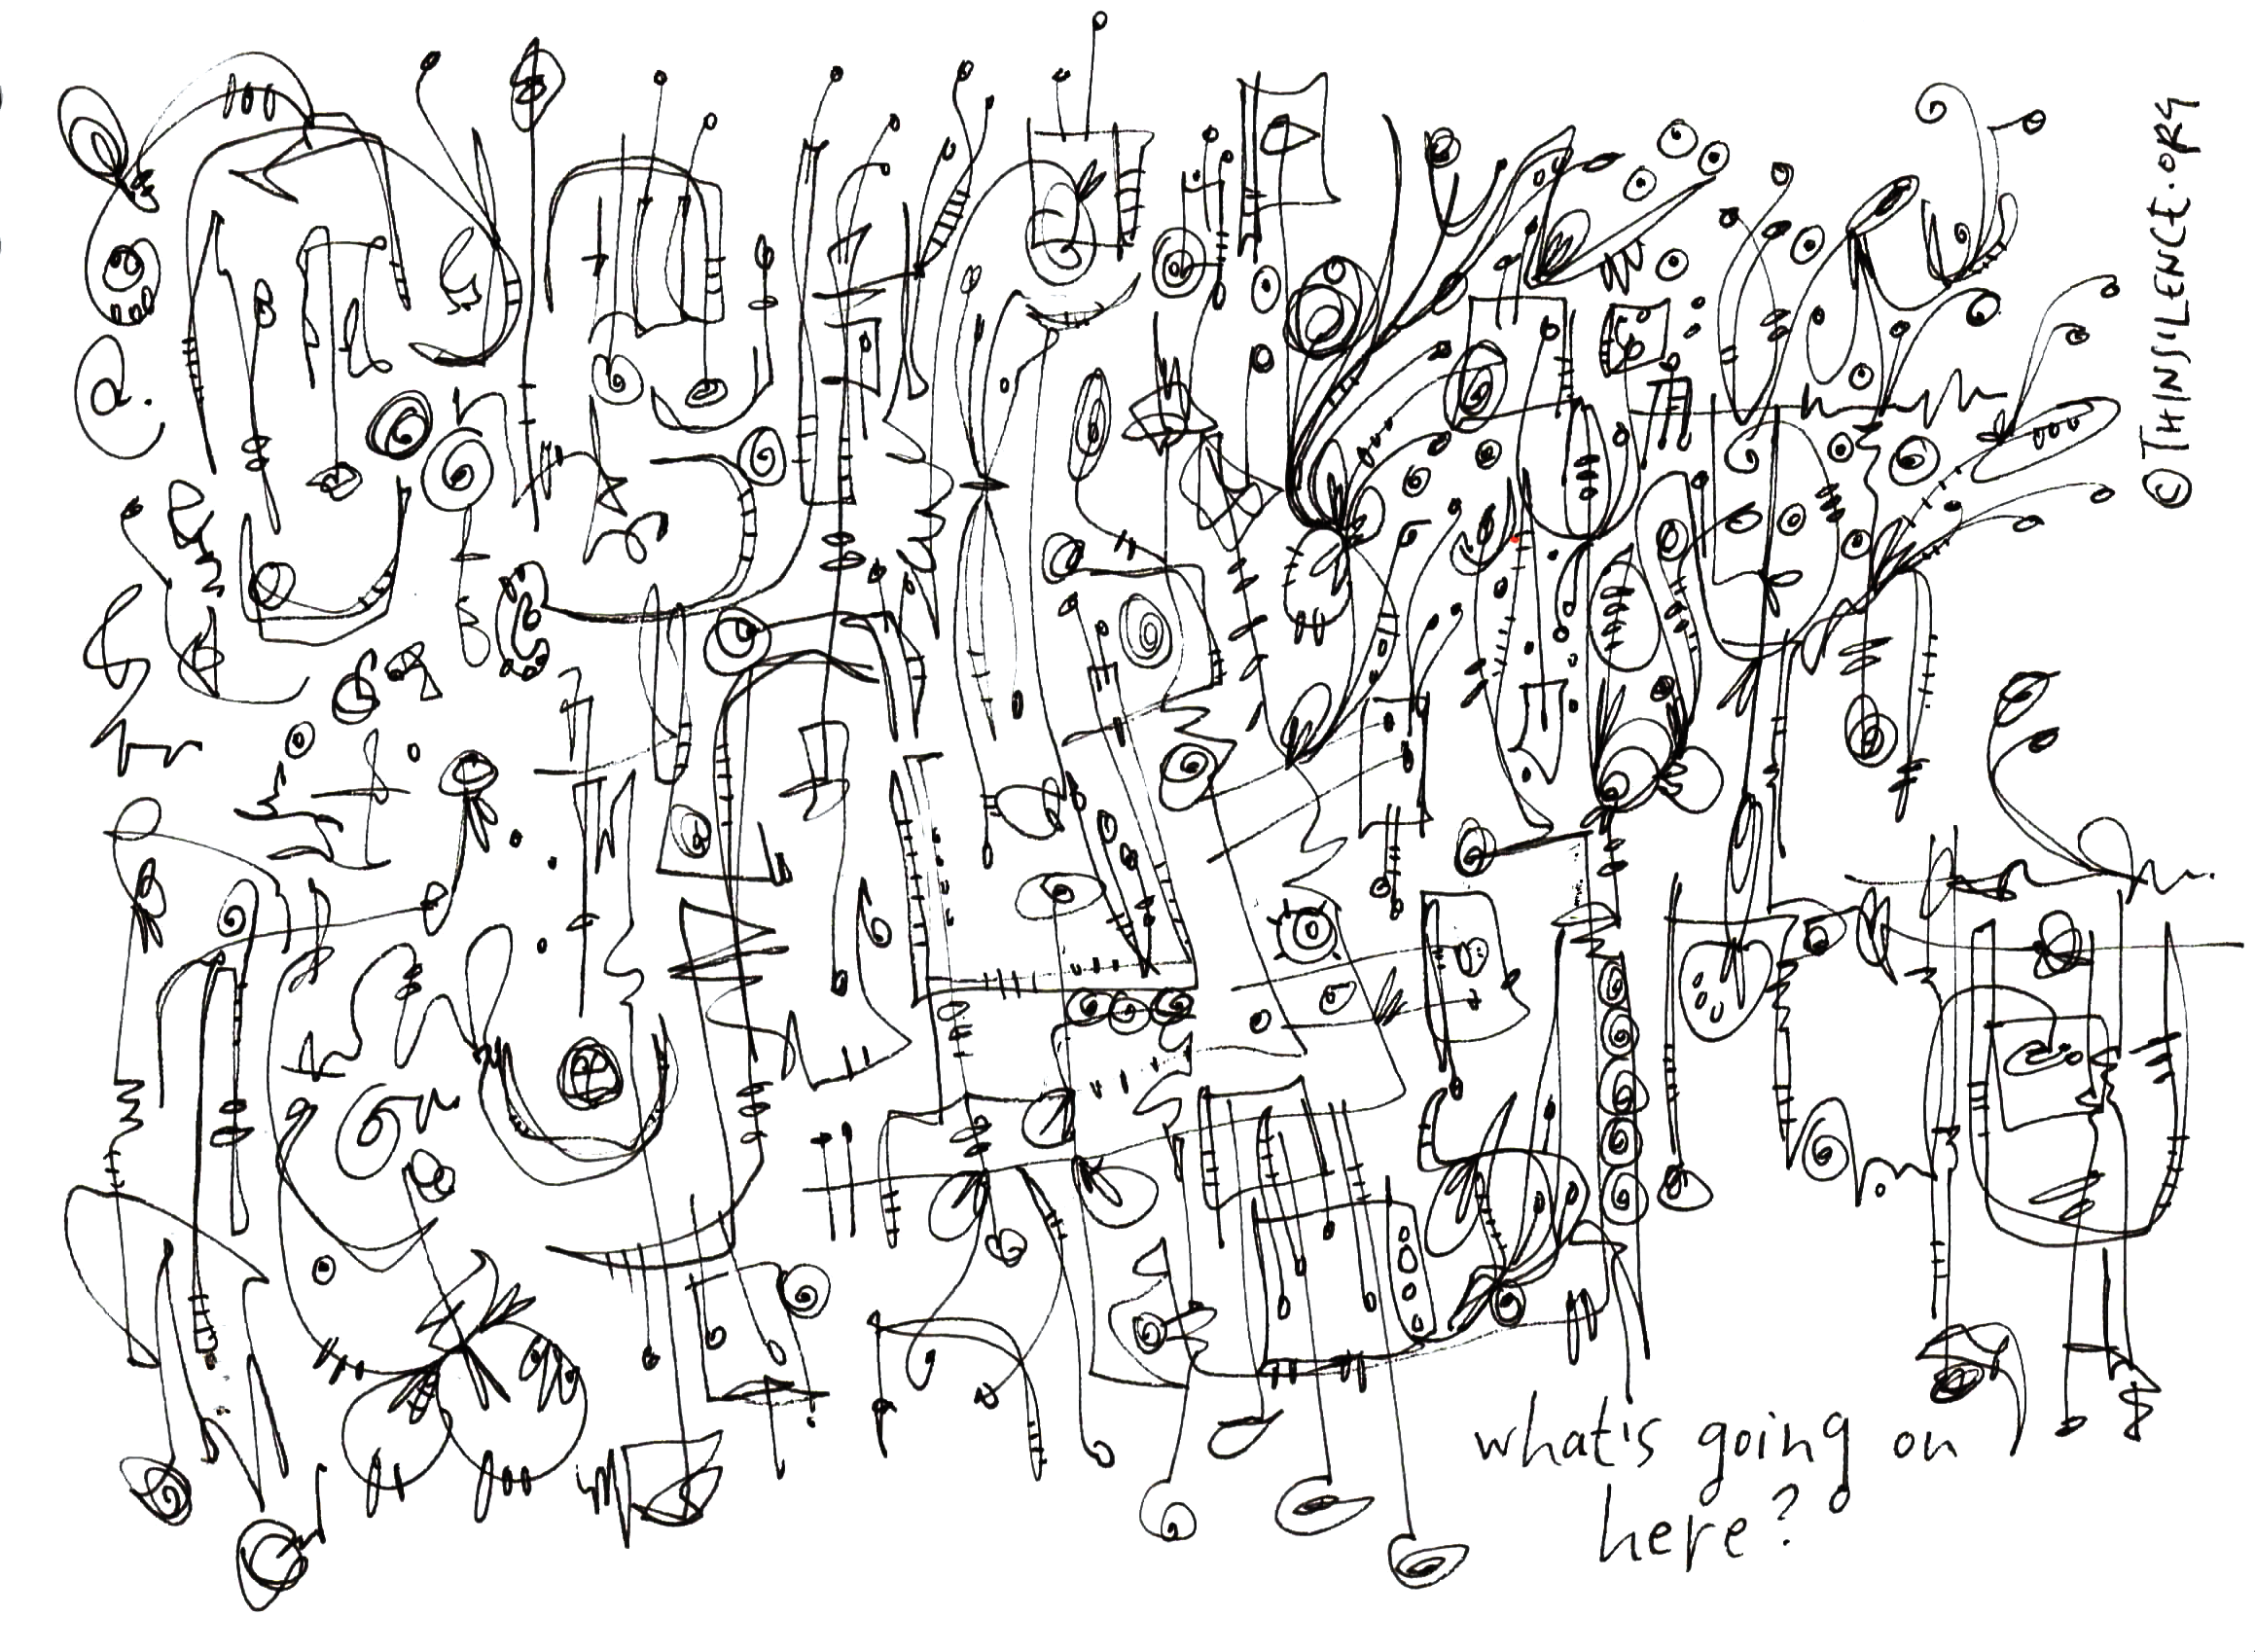 ©THINSILENCE.ORG
what's going on
here?